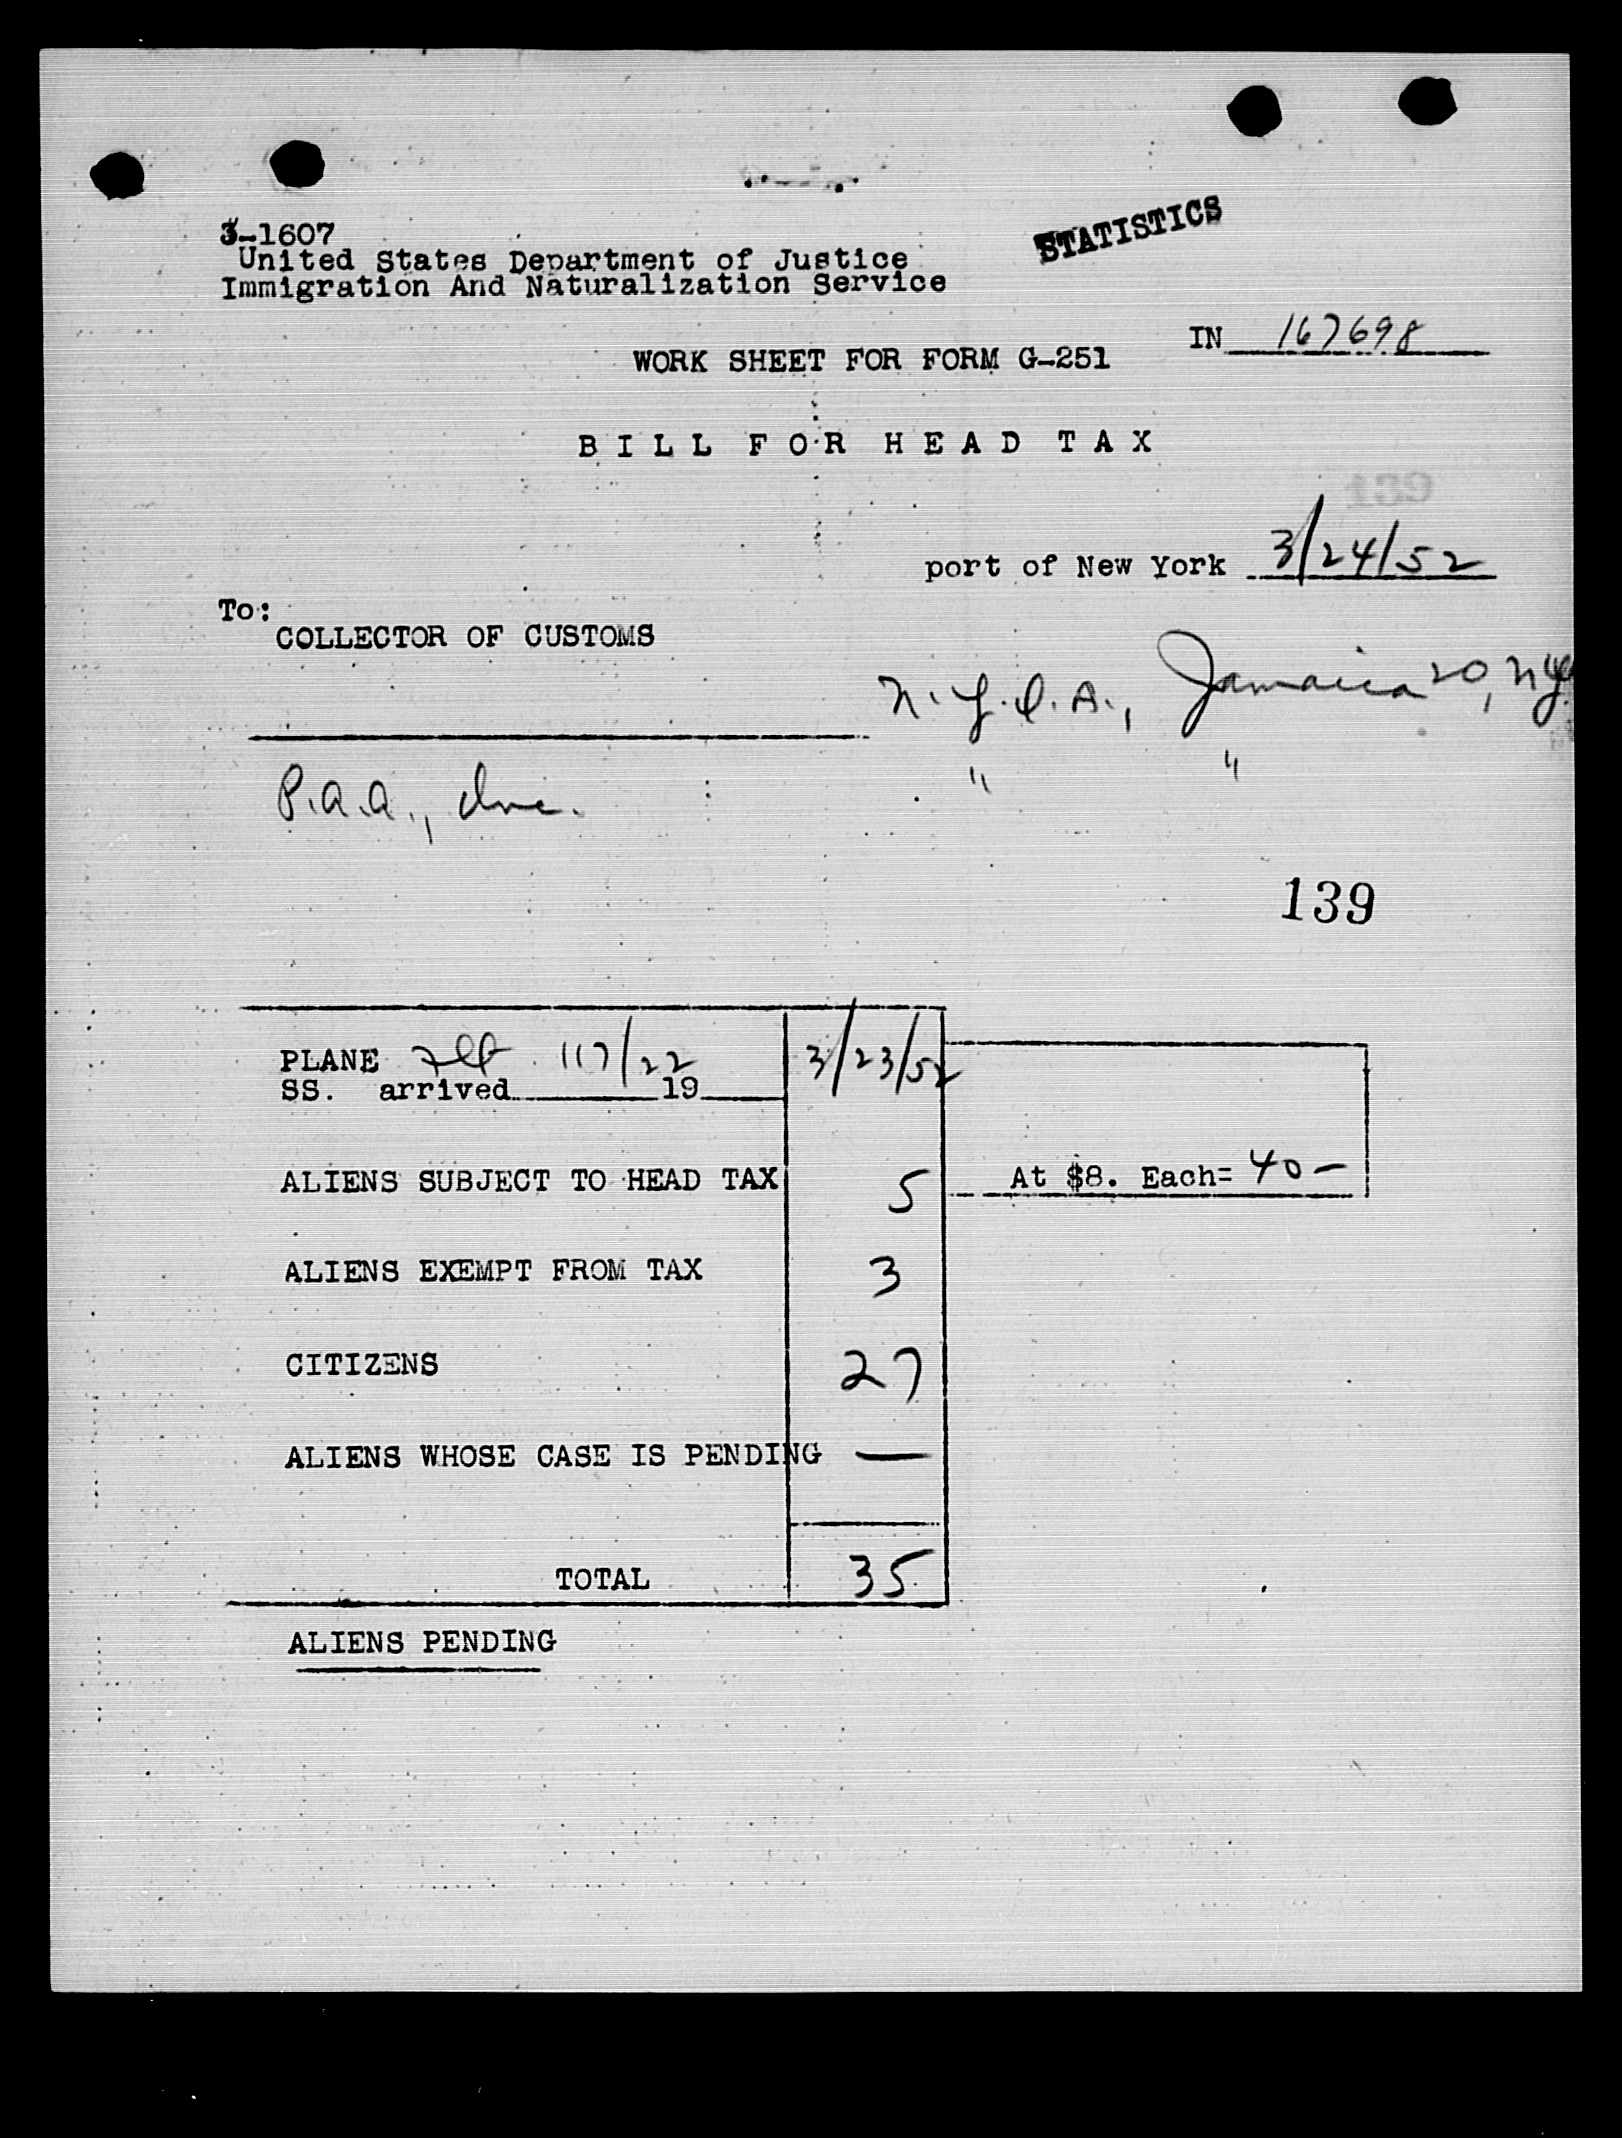 3-1607
United States Department of Justice
Immigration And Naturalization Service
STATISTICS
IN 167698
WORK SHEET FOR FORM G-251
BILL FOR HEAD TAX
139
port of New York 3/24/52
To:
COLLECTOR OF CUSTOMS
N.Y.I.A., Jamaica 20, NY
P.A.A., Inc. " "
139
PLANE Flt 117/22 3/23/52
SS. arrived 19
ALIENS SUBJECT TO HEAD TAX 5 At $8. Each= 40 —
ALIENS EXEMPT FROM TAX 3
CITIZENS 27
ALIENS WHOSE CASE IS PENDING —
TOTAL 35
ALIENS PENDING